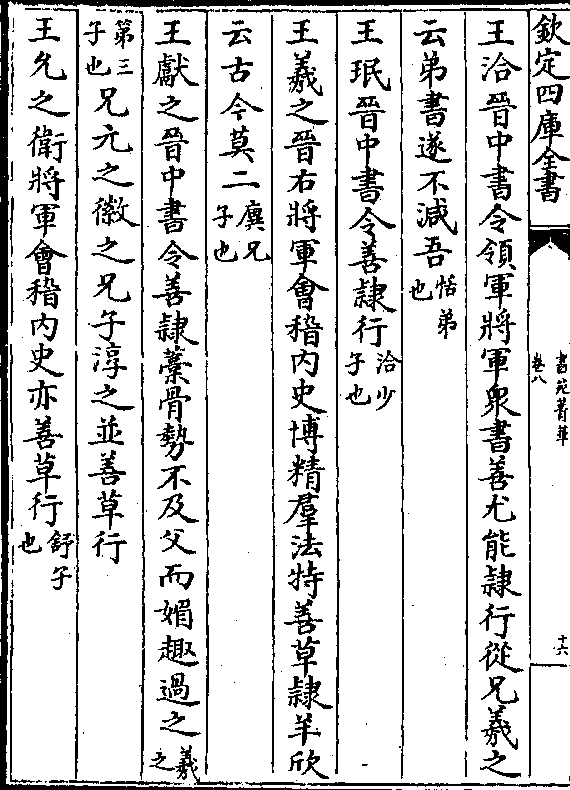 欽定四庫全書
書苑菁華
卷八
十六
王洽晉中書令領軍將軍衆書善尤能隸行從兄羲之
云弟書遂不減吾恬弟也
王珉晉中書令善隸行洽少子也
王羲之晉右將軍會稽内史博精羣法特善草隸羊欣
云古今莫二廙兄子也
王獻之晉中書令善隸藁骨勢不及父而媚趣過之羲之
第三子也兄元之徽之兄子淳之並善草行
王允之衛將軍會稽内史亦善草行舒子也